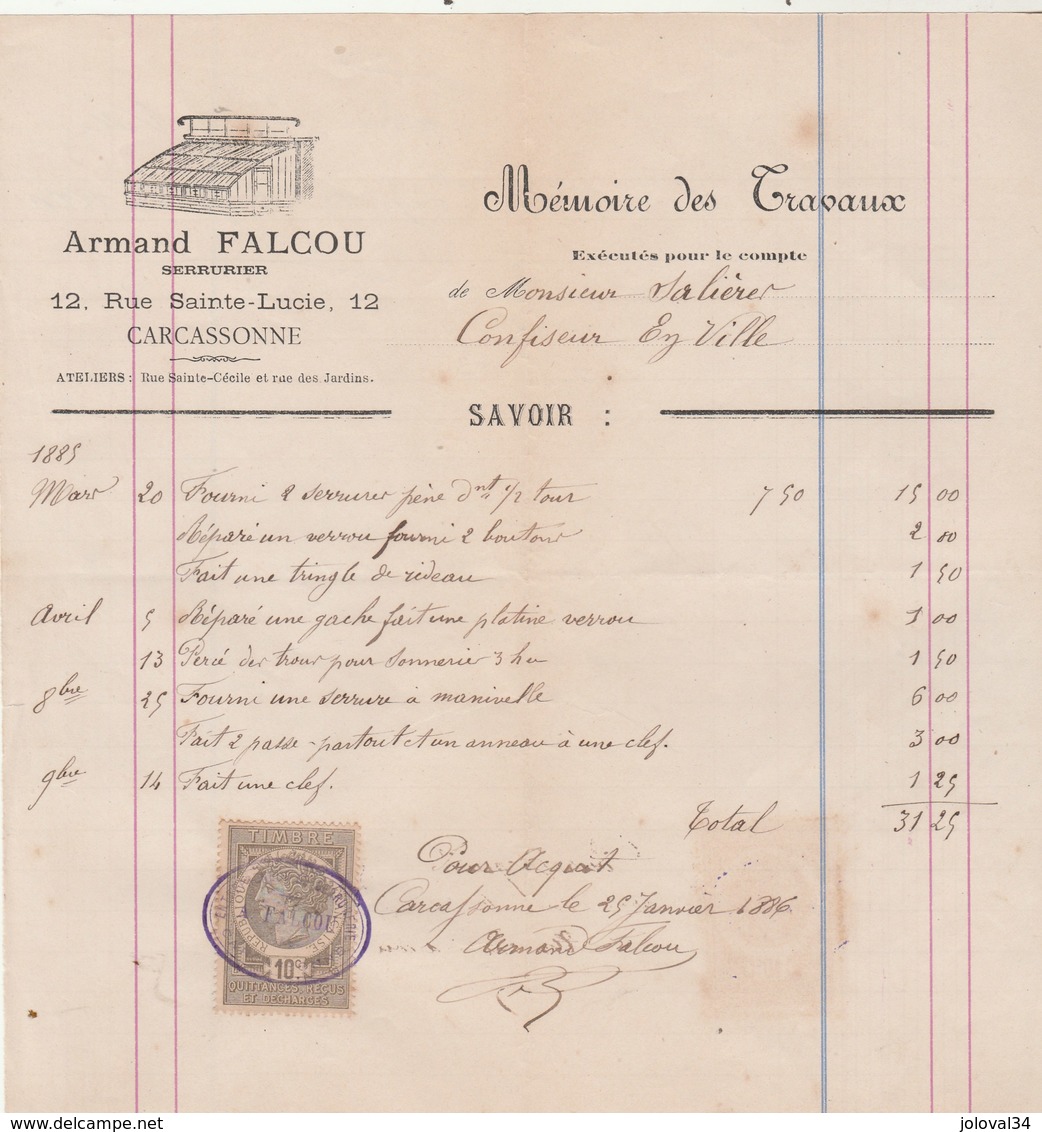 Armand FALCOU
SERRURIER
12, Rue Sainte-Lucie, 12
CARCASSONNE
ATELIERS: Rue Sainte-Cécile et rue des Jardins.
Mémoire des Travaux
Exécutés pour le compte
de Monsieur Salières
Confiseur En Ville
SAVOIR :
1885
Mars 20 Fourni 2 serrures pène dnt 1/2 tour 7 50 15 00
Réparé un verrou fourni 2 boutons 2 00
Fait une tringle de rideau 1 50
Avril 5 Réparé une gache fait une platine verrou 1 00
13 Percé des trous pour sonnerie 3 hes 1 50
8bre 25 Fourni une serrure à manivelle 6 00
Fait 2 passe-partout et un anneau à une clef. 3 00
9bre 14 Fait une clef. 1 25
Total 31 25
Pour Acquit
Carcassonne le 25 Janvier 1886
Armand Falcou
TIMBRE
REPUBLIQUE FRANÇAISE
FALCOU
10c
QUITTANCES REÇUS
ET DÉCHARGES
delcampe.net
joloval34